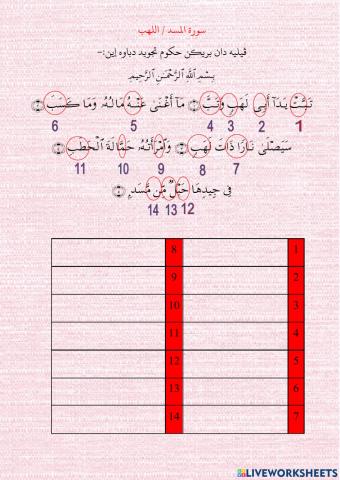 سورة المسد / اللهب
ڤيليه دان بريكن حكوم تجويد دباوه اين:-
بِسْمِ ٱللَّهِ ٱلرَّحْمَٰنِ ٱلرَّحِيمِ
تَبَّتْ يَدَآ أَبِى لَهَبٍ وَتَبَّ ۝١ مَآ أَغْنَىٰ عَنْهُ مَالُهُۥ وَمَا كَسَبَ ۝٢
1 2 3 4 5 6
سَيَصْلَىٰ نَارًا ذَاتَ لَهَبٍ ۝٣ وَٱمْرَأَتُهُۥ حَمَّالَةَ ٱلْحَطَبِ ۝٤
7 8 9 10 11
فِى جِيدِهَا حَبْلٌ مِّن مَّسَدٍۭ ۝٥
12 13 14
1 8
2 9
3 10
4 11
5 12
6 13
7 14
LIVEWORKSHEETS